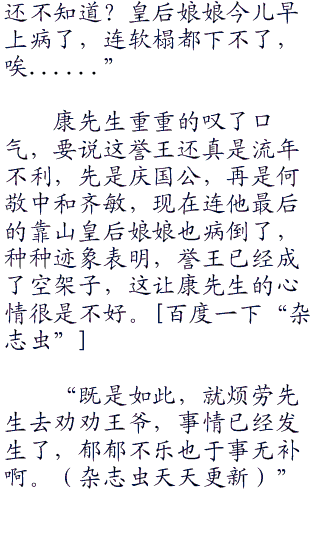 还不知道？皇后娘娘今儿早
上病了，连软榻都下不了，
唉......”
康先生重重的叹了口
气，要说这誉王还真是流年
不利，先是庆国公，再是何
敬中和齐敏，现在连他最后
的靠山皇后娘娘也病倒了，
种种迹象表明，誉王已经成
了空架子，这让康先生的心
情很是不好。[百度一下“杂
志虫”]
“既是如此，就烦劳先
生去劝劝王爷，事情已经发
生了，郁郁不乐也于事无补
啊。（杂志虫天天更新）”